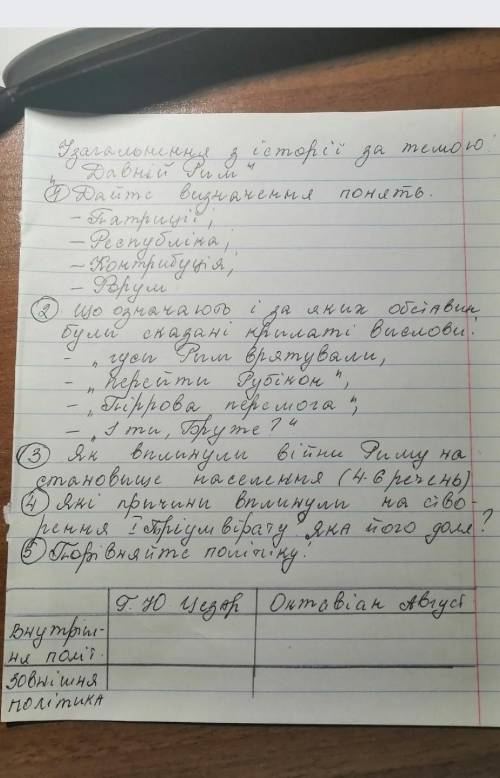 Узагальнення з історії за темою:
"Давній Рим"
① Дайте визначення понять.
- Патриції;
- Республіка;
- Контрибуція;
- Форум.
② Що означають і за яких обставин
були сказані крилаті вислови:
- "гуси Рим врятували,
- "перейти Рубікон",
- "Піррова перемога",
- "І ти, Бруте?"
③ Як вплинули війни Риму на
становище населення (4-6 речень)
④ Які причини вплинули на ство-
рення І Тріумвірату. Яка його доля?
⑤ Порівняйте політику:
Г. Ю Цезар Октавіан Август
Внутріш-
ня політ.
Зовнішня
політика